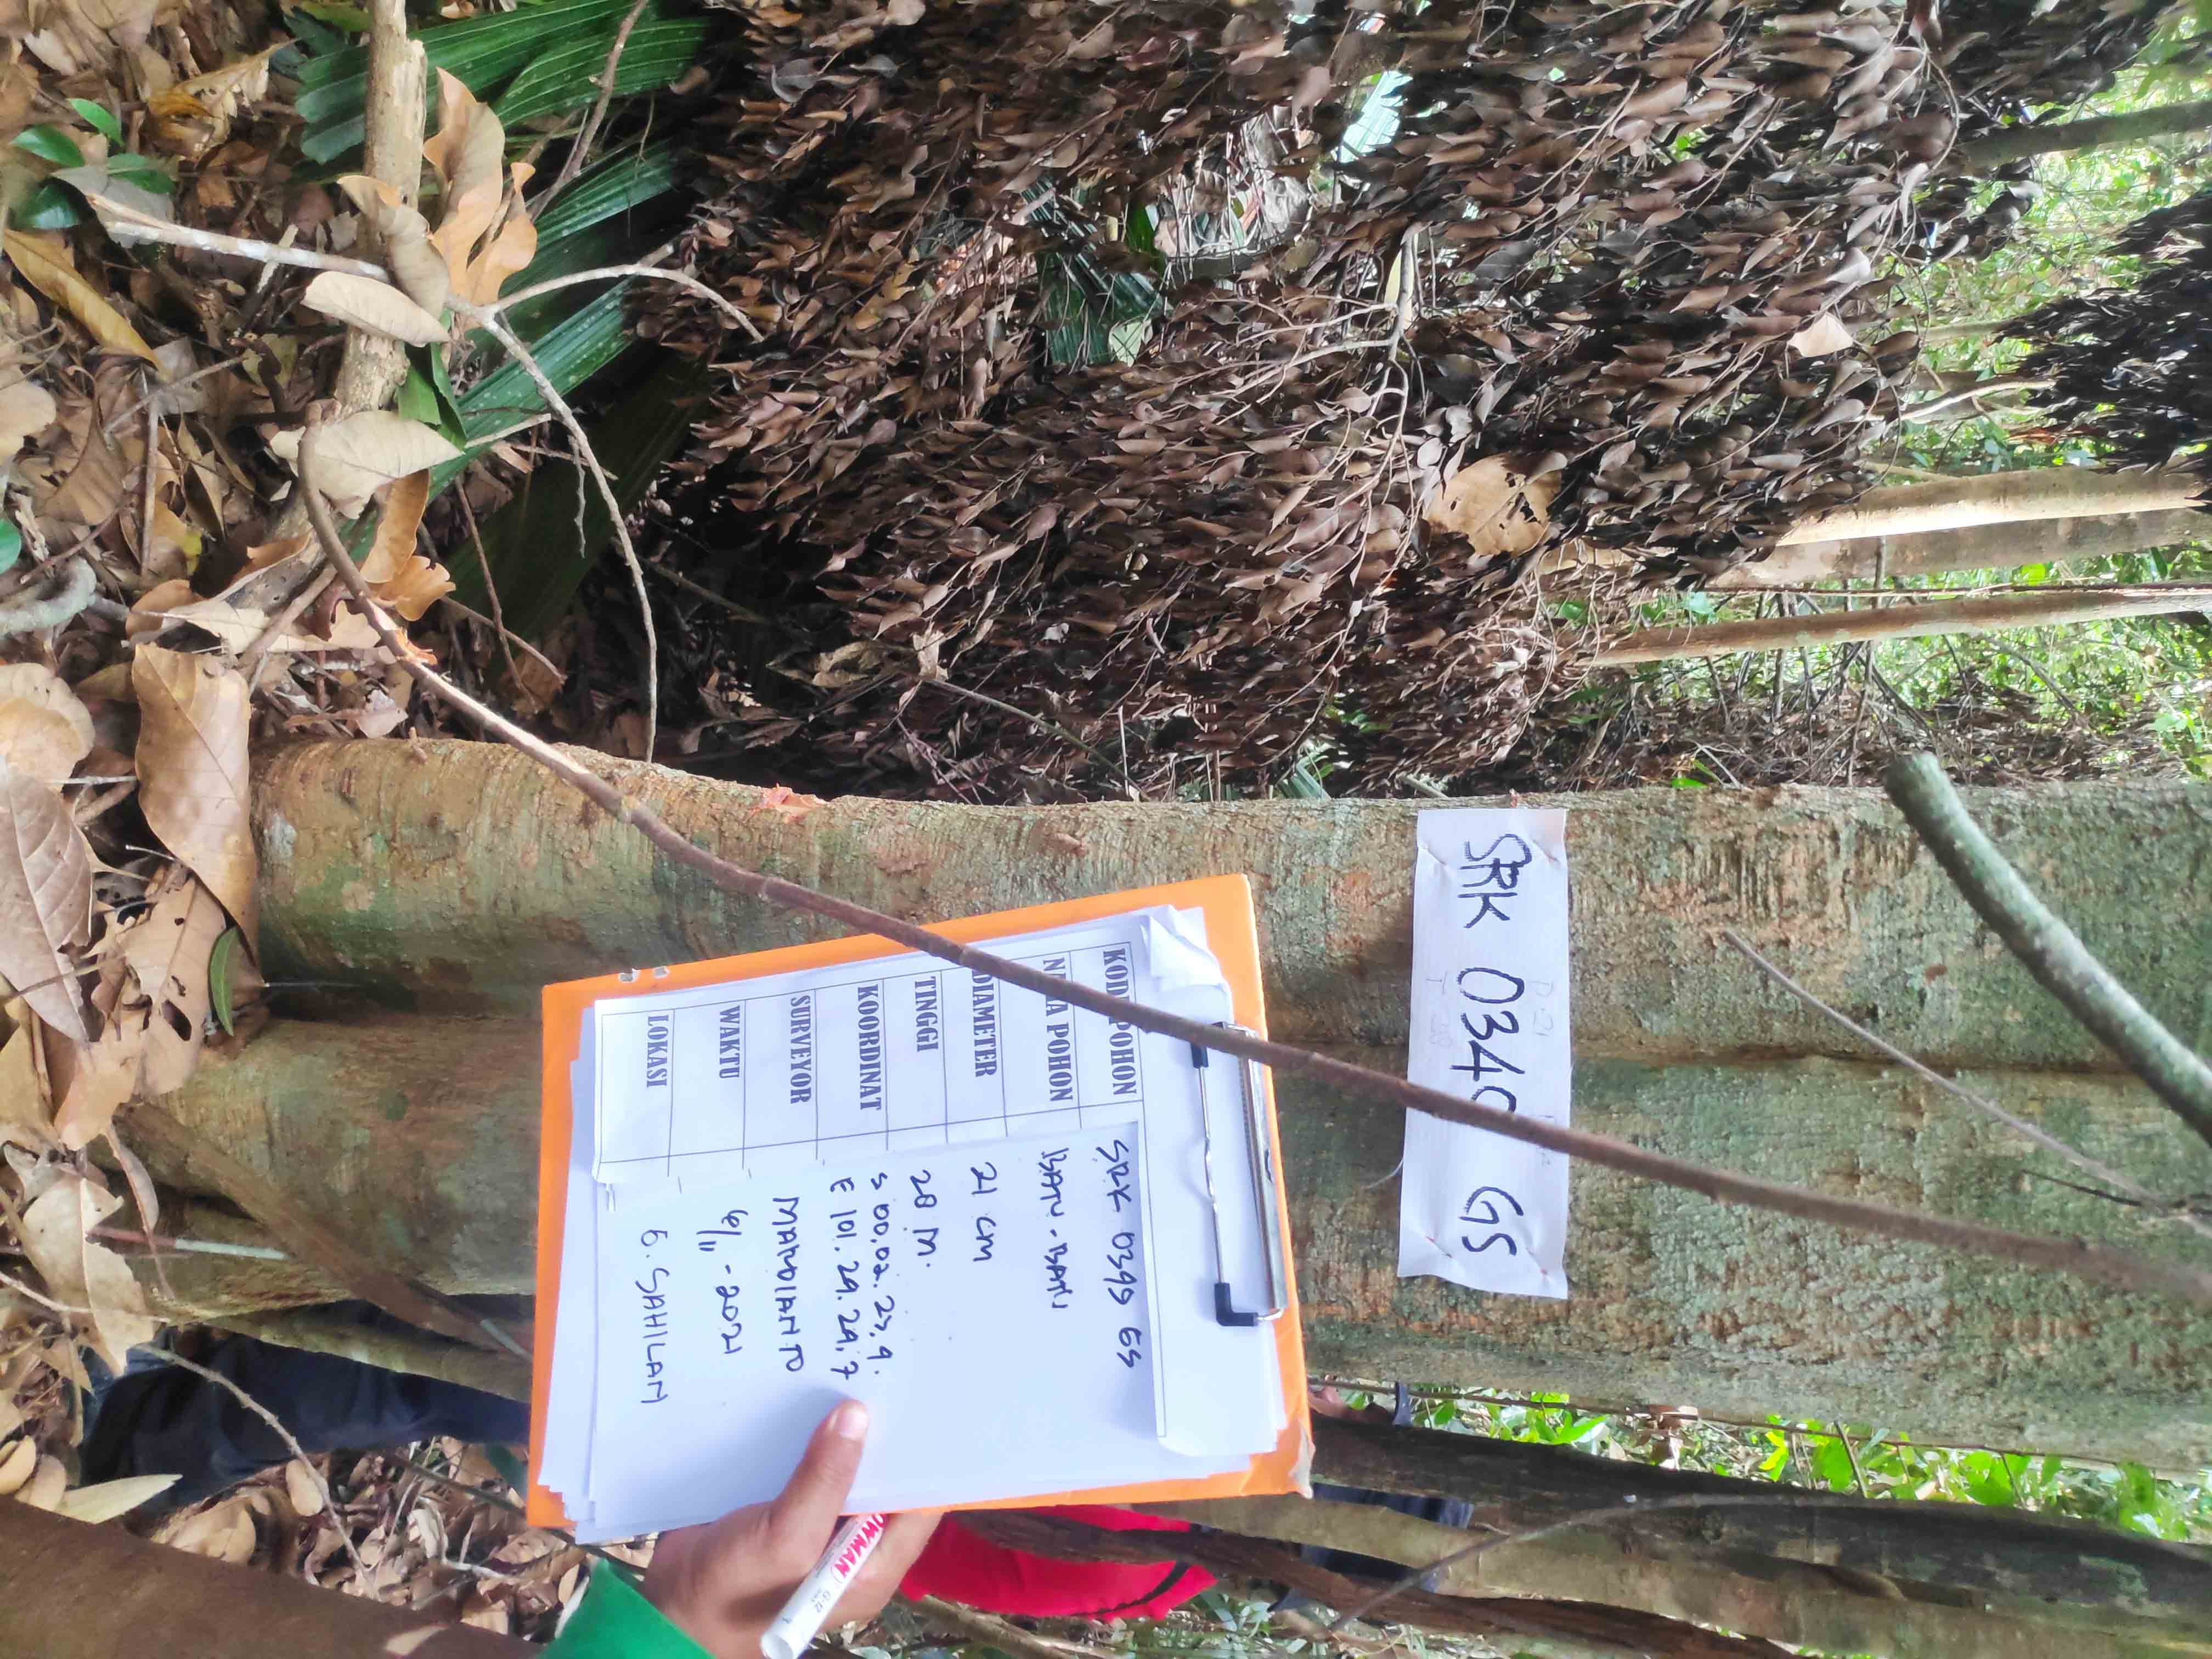 SRK 034 GS
KODE POHON SRK 0349 GS
NAMA POHON BATU-BATU
DIAMETER 21 CM
TINGGI 28 M.
KOORDINAT S 00.02.27,9.
E 101.29.29,7
SURVEYOR MARDIANTO
WAKTU 6/11-2021
LOKASI G. SAHILAN
OWMAN